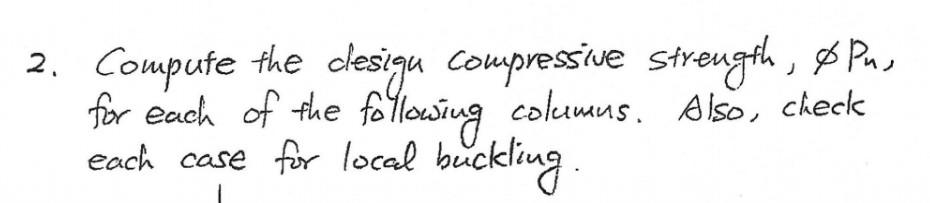 2. Compute the design compressive strength, ϕPn,
for each of the following columns. Also, check
each case for local buckling.